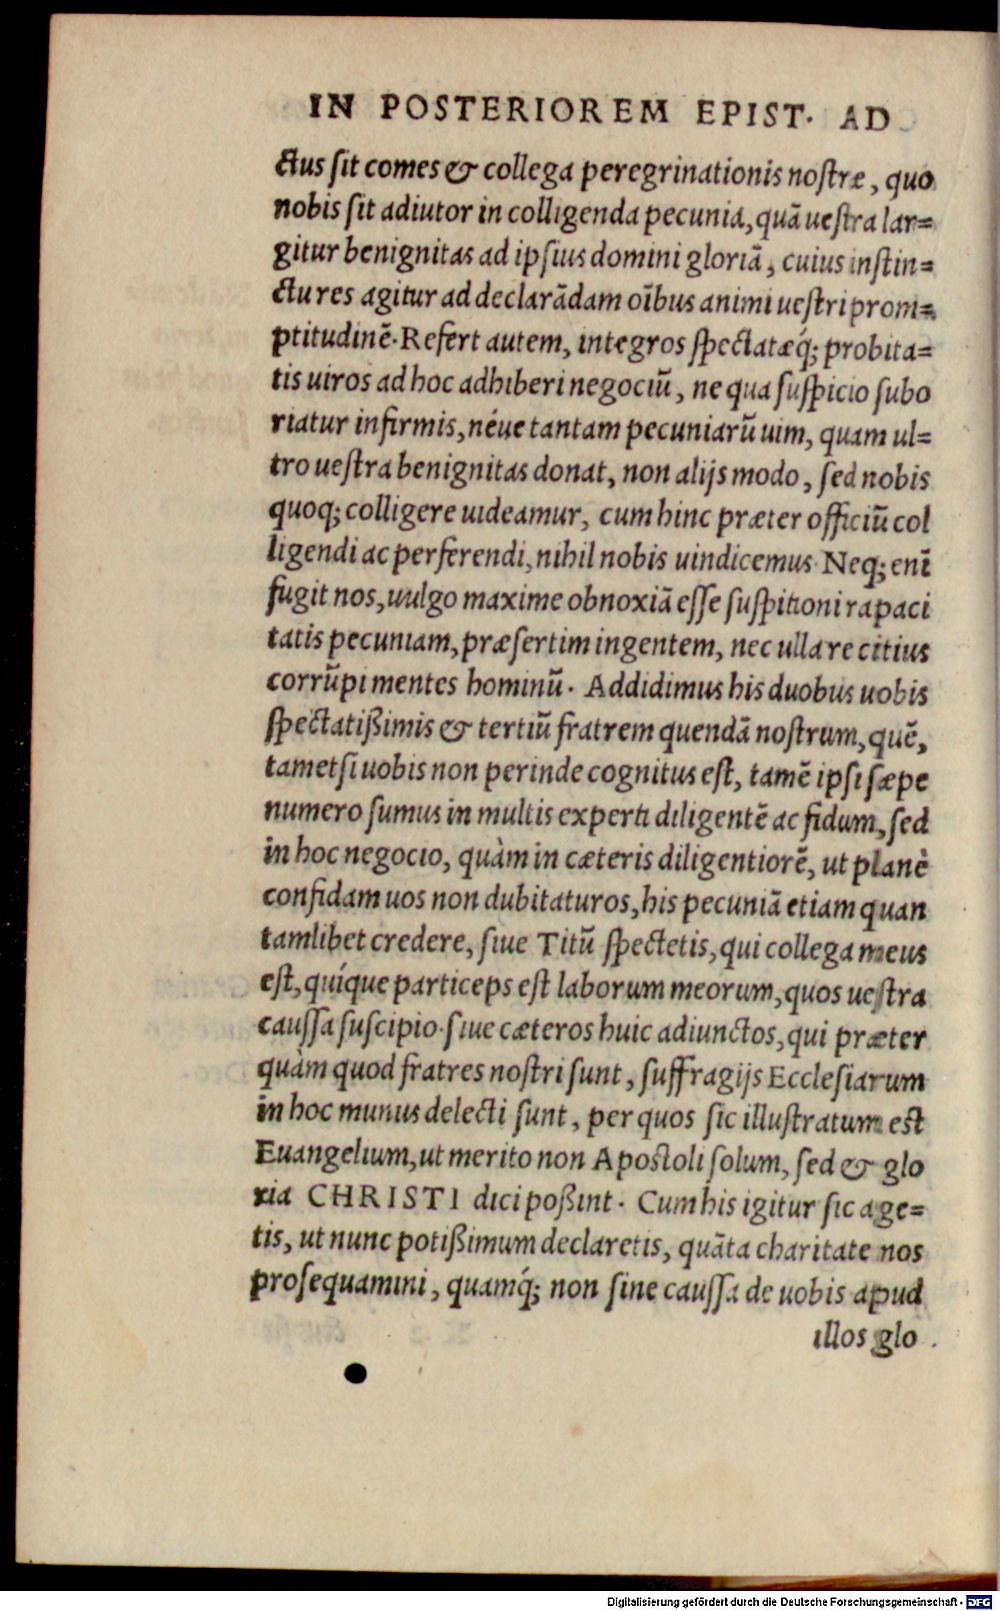 IN POSTERIOREM EPIST. AD
ctus sit comes & collega peregrinationis nostræ, quo
nobis sit adiutor in colligenda pecunia, quã uestra lar=
gitur benignitas ad ipsius domini gloriã, cuius instin=
ctu res agitur ad declarãdam oĩbus animi uestri prom=
ptitudinẽ. Refert autem, integros spectatæq́; probita=
tis uiros ad hoc adhiberi negociũ, ne qua suspicio subo
riatur infirmis, néue tantam pecuniarũ uim, quam ul=
tro uestra benignitas donat, non alijs modo, sed nobis
quoq; colligere uideamur, cum hinc præter officiũ col
ligendi ac perferendi, nihil nobis uindicemus. Neq; enĩ
fugit nos, uulgo maxime obnoxiã esse suspitioni rapaci
tatis pecuniam, præsertim ingentem, nec ulla re citius
corrũpi mentes hominũ. Addidimus his duobus uobis
spectatißimis & tertiũ fratrem quendã nostrum, quẽ,
tametsi uobis non perinde cognitus est, tamẽ ipsi sæpe
numero sumus in multis experti diligentẽ ac fidum, sed
in hoc negocio, quàm in cæteris diligentiorẽ, ut planè
confidam uos non dubitaturos, his pecuniã etiam quan
tamlibet credere, siue Titũ spectetis, qui collega meus
est, quíque particeps est laborum meorum, quos uestra
caussa suscipio. siue cæteros huic adiunctos, qui præter
quàm quod fratres nostri sunt, suffragijs Ecclesiarum
in hoc munus delecti sunt, per quos sic illustratum est
Euangelium, ut merito non Apostoli solum, sed & glo
ria CHRISTI dici poßint. Cum his igitur sic age=
tis, ut nunc potißimum declaretis, quãta charitate nos
prosequamini, quamq́; non sine caussa de uobis apud
illos glo
Digitalisierung gefördert durch die Deutsche Forschungsgemeinschaft - DFG